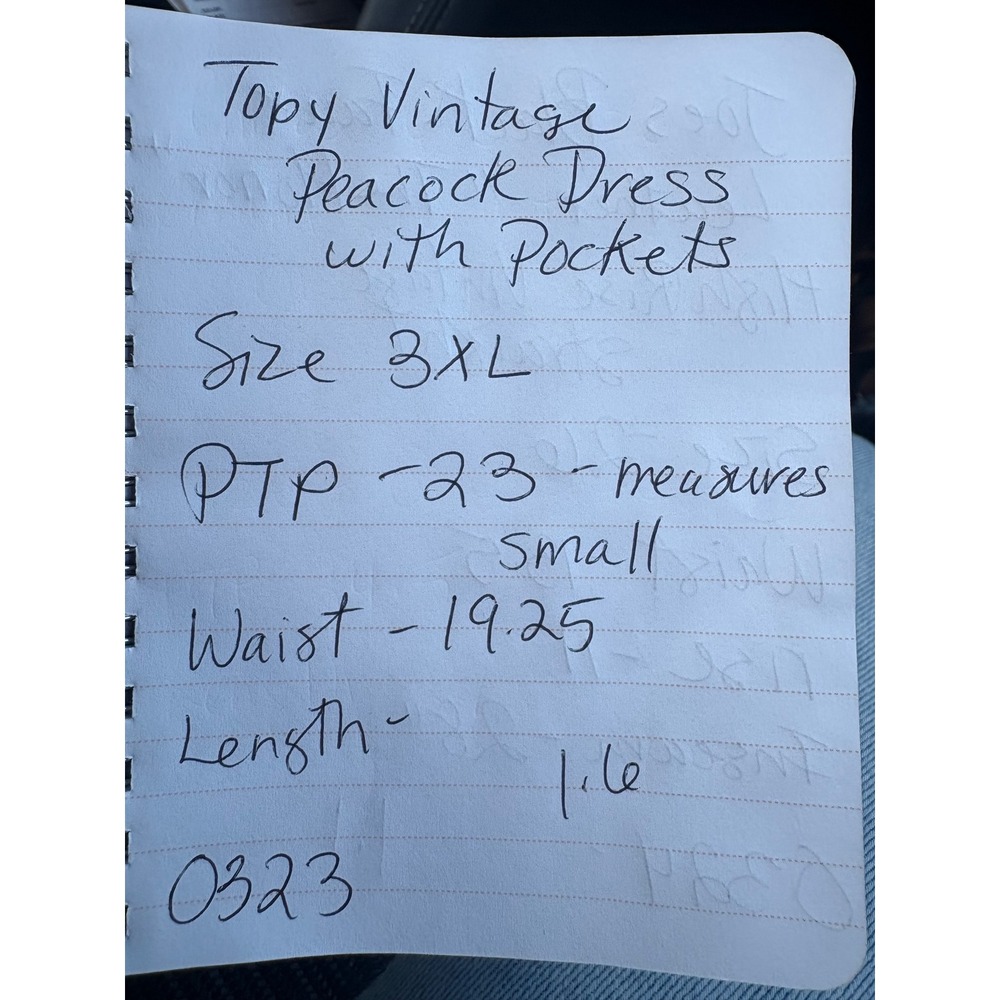 Topy Vintage
Peacock Dress
with Pockets
Size 3XL
PTP - 23 - measures
small
Waist - 19.25
Length -
1.6
0323